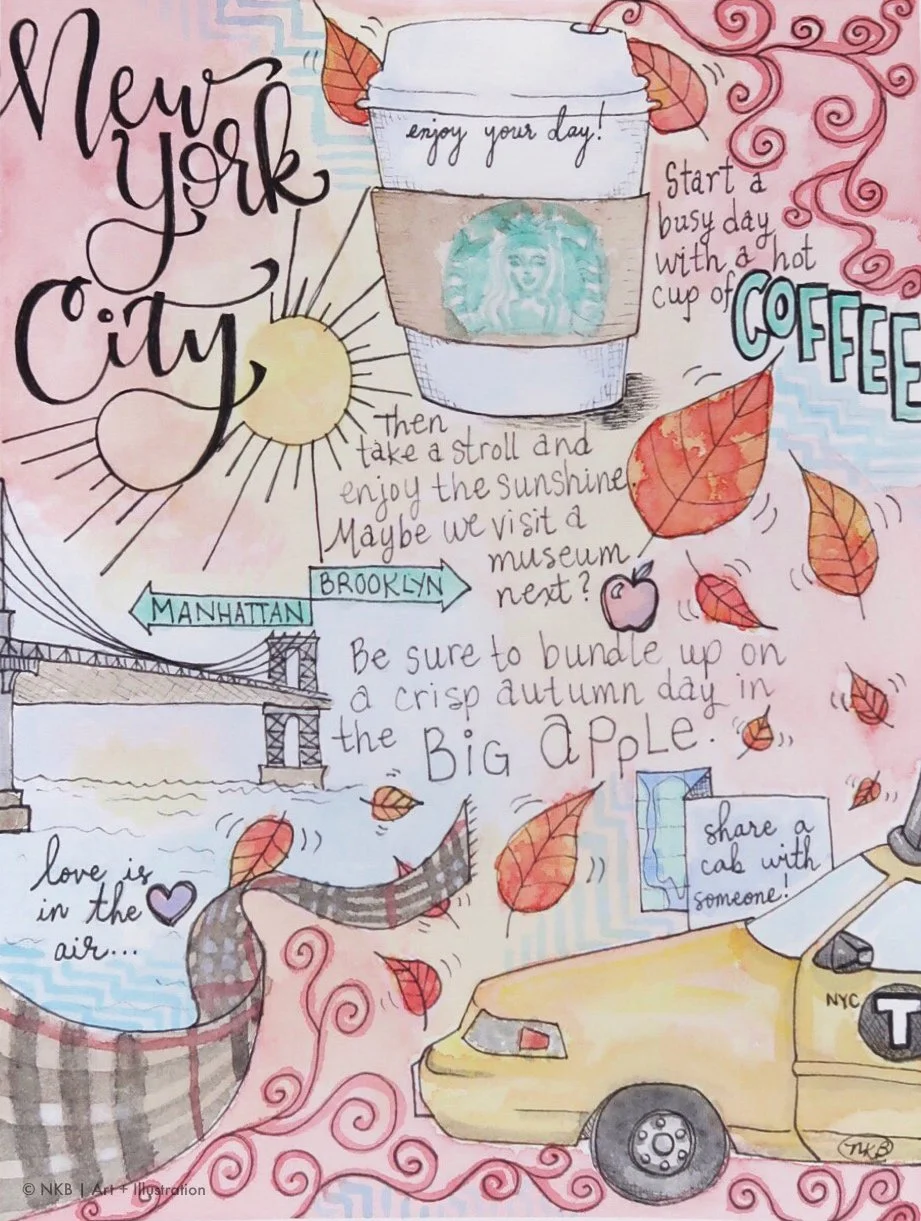 New
York
City
enjoy your day!
Start a
busy day
with a hot
cup of
COFFEE
Then
take a stroll and
enjoy the sunshine.
Maybe we visit a
museum
next?
MANHATTAN
BROOKLYN
Be sure to bundle up on
a crisp autumn day in
the BIG APPLE.
love is
in the
air...
share a
cab with
someone!
NYC T
NKB
© NKB | Art + Illustration